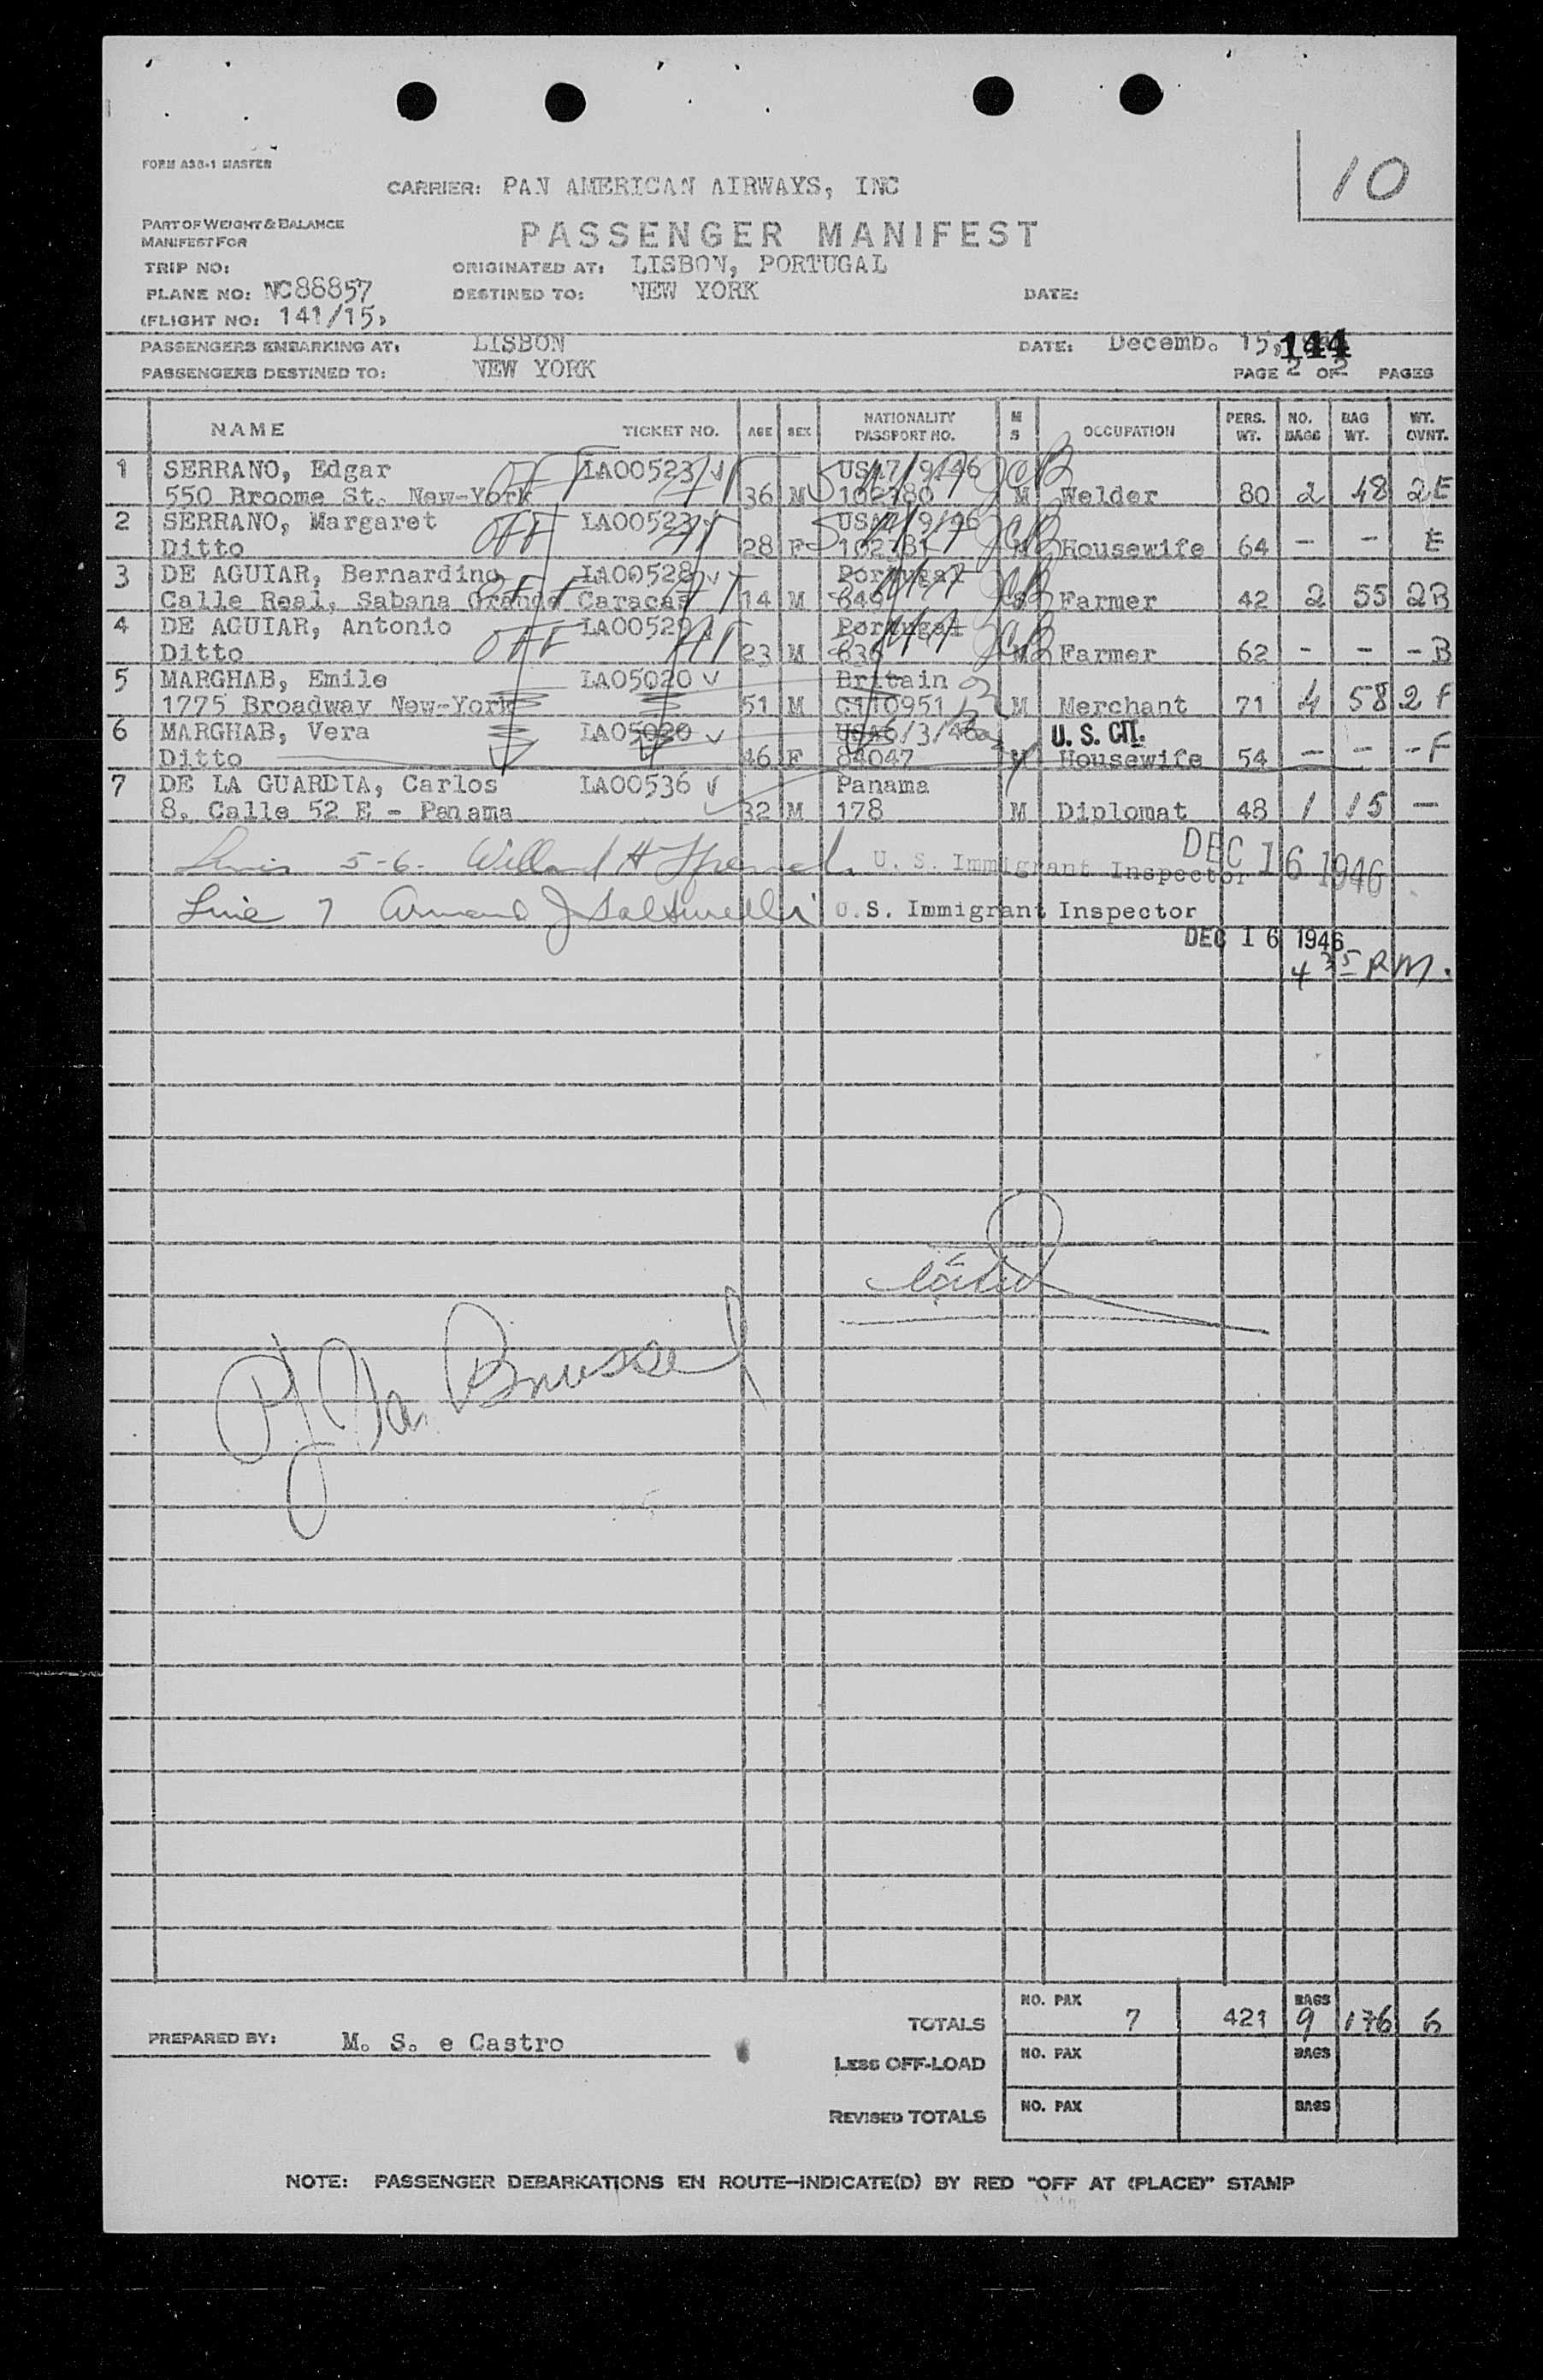 10
FORM A38-1 MASTER
CARRIER: PAN AMERICAN AIRWAYS, INC
PART OF WEIGHT & BALANCE
MANIFEST FOR
PASSENGER MANIFEST
TRIP NO: ORIGINATED AT: LISBON, PORTUGAL
PLANE NO: NC88857 DESTINED TO: NEW YORK DATE:
(FLIGHT NO: 141/15,
PASSENGERS EMBARKING AT: LISBON DATE: Decemb. 15, 144
PASSENGERS DESTINED TO: NEW YORK PAGE 2 OF 2 PAGES
NAME TICKET NO. AGE SEX NATIONALITY PASSPORT NO. M S OCCUPATION PERS. WT. NO. BAGS BAG WT. WT. OVNT.
1 SERRANO, Edgar OFF LA00523 USA7/9/46
550 Broome St. New-York 36 M 102780 M Welder 80 2 48 2E
2 SERRANO, Margaret OFF LA00523
Ditto 28 F 102781 Housewife 64 - - E
3 DE AGUIAR, Bernardino OFF LA00528 Portugal
Calle Real, Sabana Grande Caracas 14 M 649 Farmer 42 2 55 2B
4 DE AGUIAR, Antonio OFF LA00529 Portugal
Ditto 23 M 636 Farmer 62 - - - B
5 MARGHAB, Emile LA05020 Britain
1775 Broadway New-York 51 M C110951 M Merchant 71 4 58 2 F
6 MARGHAB, Vera LA05020 USA6/3/46 U. S. CIT.
Ditto 46 F 84047 M Housewife 54 - - - F
7 DE LA GUARDIA, Carlos LA00536 Panama
8. Calle 52 E - Panama 32 M 178 M Diplomat 48 1 15 -
5-6. Willard H U. S. Immigrant Inspector DEC 16 1946
Line 7 Armand J U.S. Immigrant Inspector
DEC 16 1946
4 35 P.M.
TOTALS NO. PAX 7 421 BAGS 9 176 6
PREPARED BY: M. S. e Castro
LESS OFF-LOAD NO. PAX BAGS
REVISED TOTALS NO. PAX BAGS
NOTE: PASSENGER DEBARKATIONS EN ROUTE—INDICATE(D) BY RED "OFF AT (PLACE)" STAMP